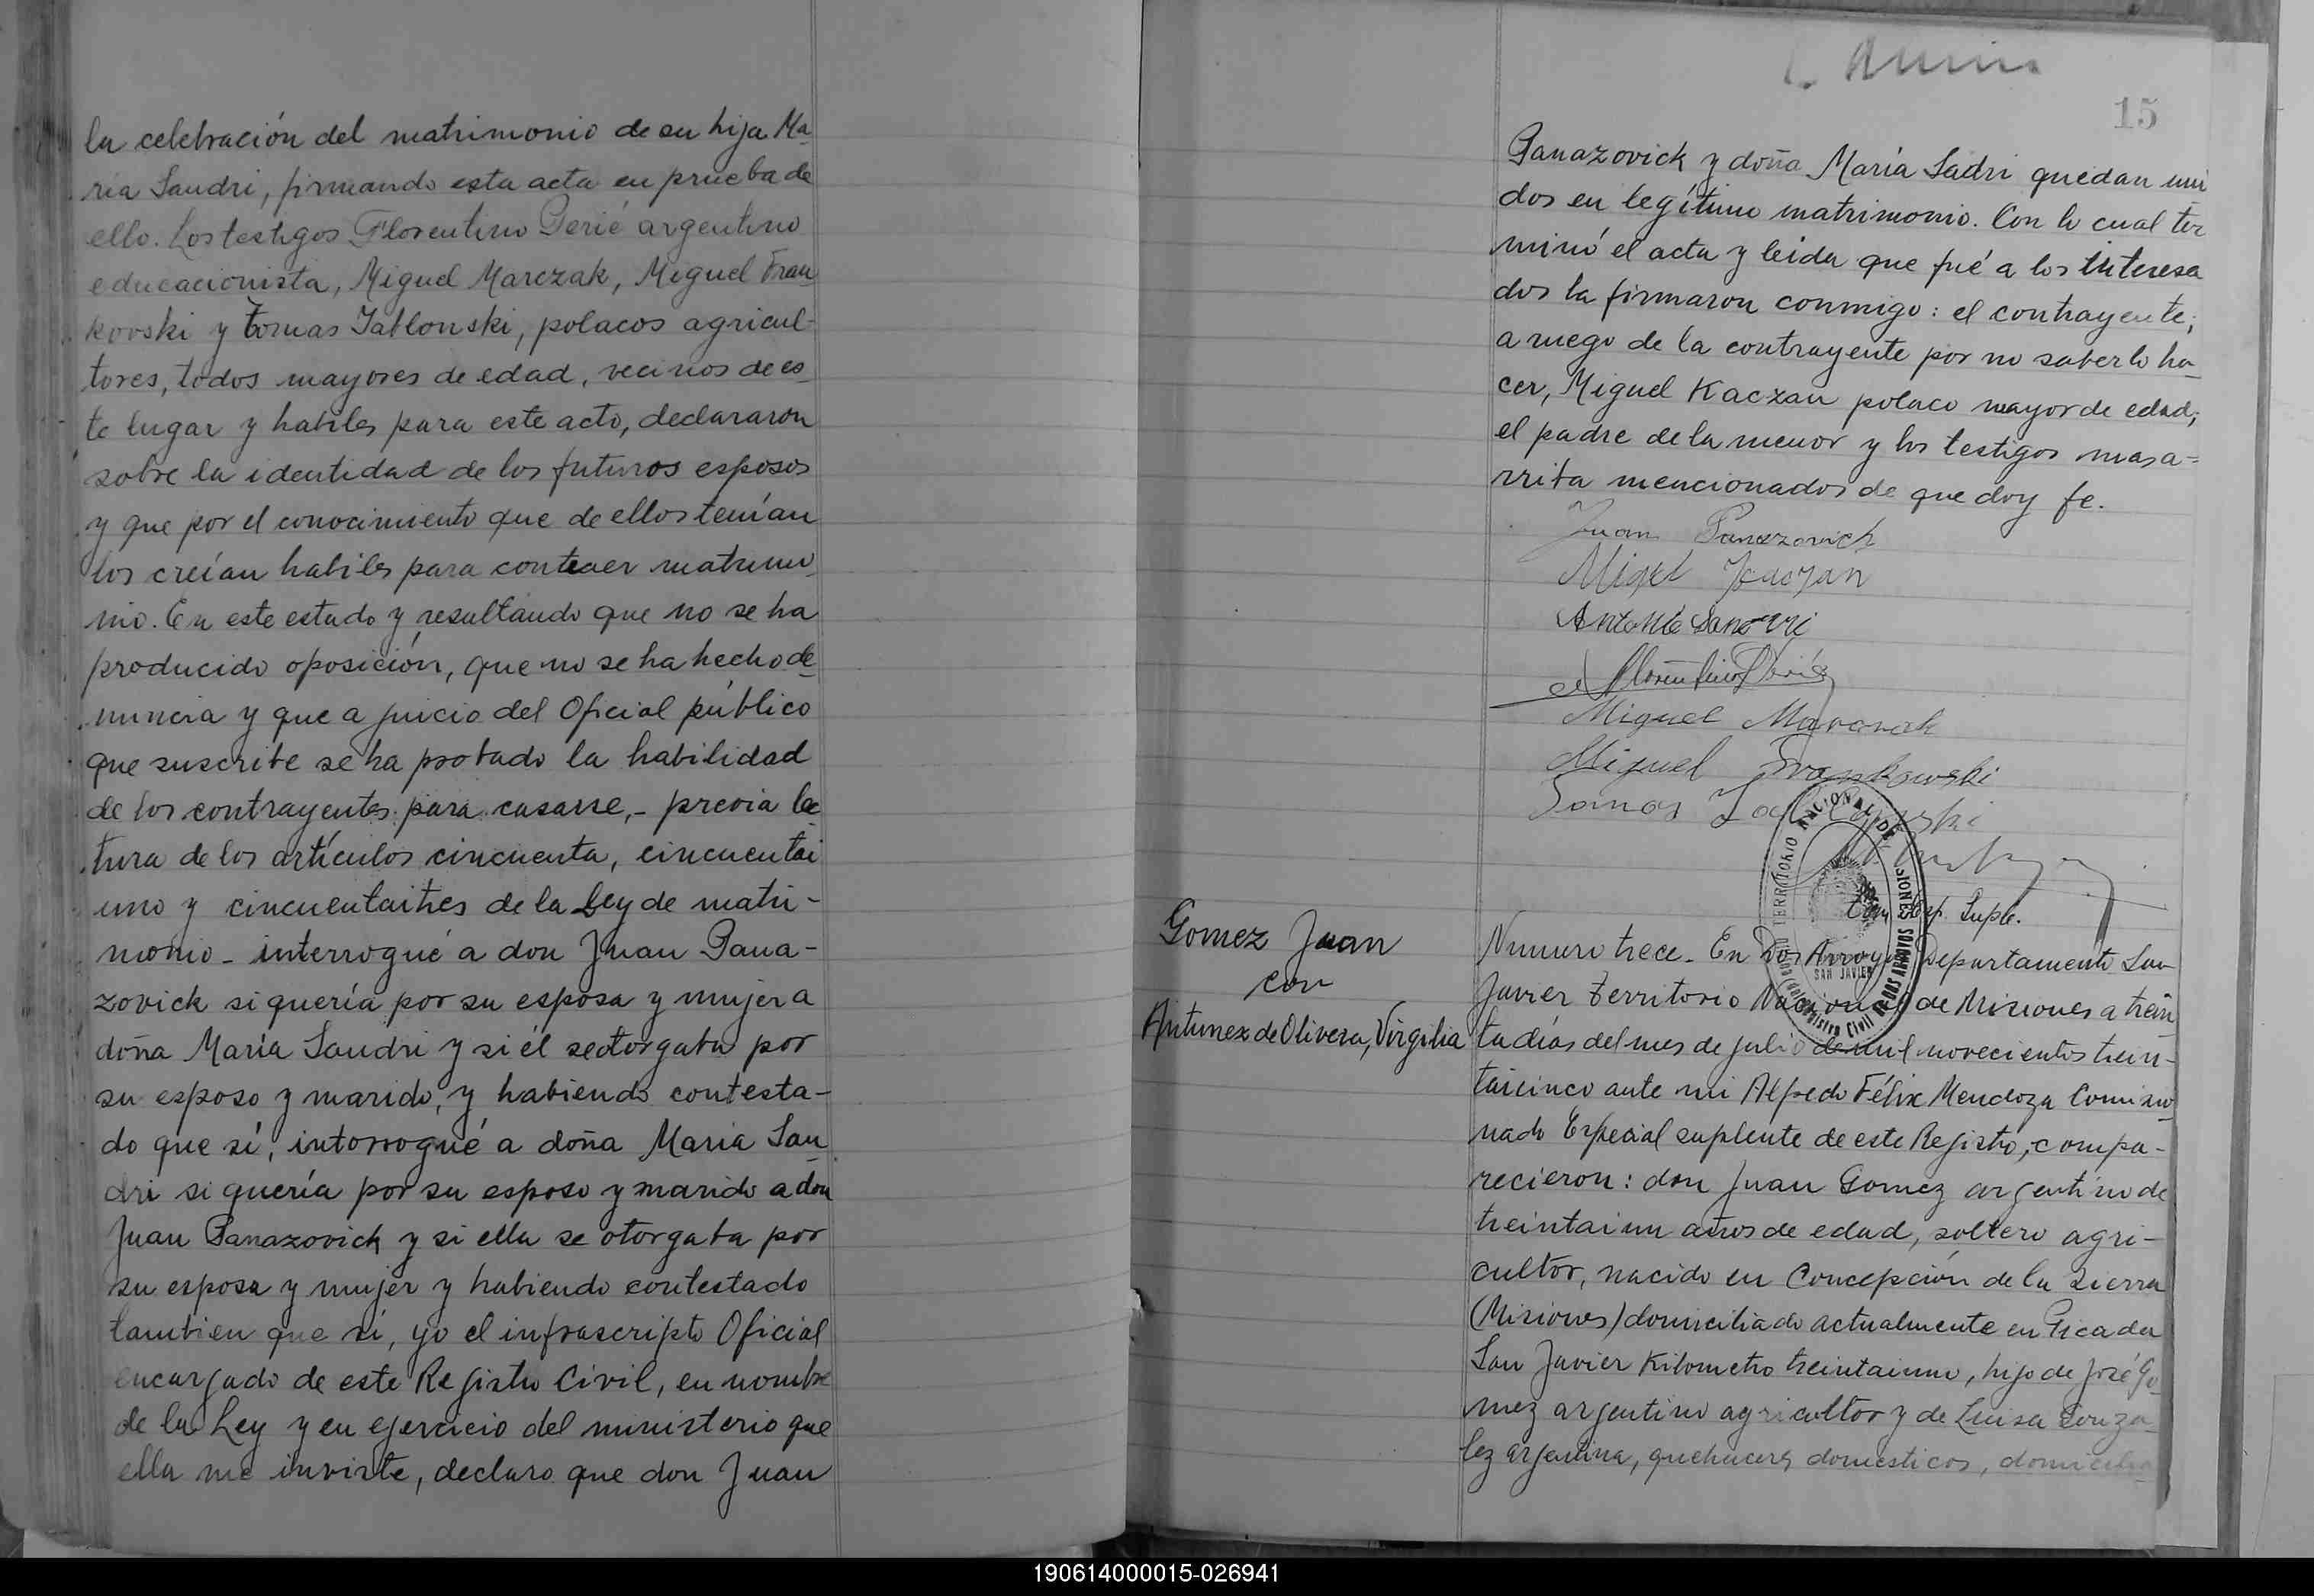 la celebración del matrimonio de su hija Ma
ría Sandri, firmando esta acta en prueba de
ello. Los testigos Florentino Perié argentino
educacionista, Miguel Marczak, Miguel Fran
kovski y Tomas Jablonski, polacos agricul-
tores, todos mayores de edad, vecinos de es_
te lugar y habiles para este acto, declararon
sobre la identidad de los futuros esposos
y que por el conocimiento que de ellos tenían
los creían habiles para contraer matrimo_
nio. En este estado y resultando que no se ha
producido oposición, que no se ha hecho de_
nuncia y que a juicio del Oficial público
que suscribe se ha probado la habilidad
de los contrayentes para casarse,- previa lec
tura de los artículos cincuenta, cincuentai
uno y cincuentaitres de la Ley de matri-
monio - interrogué a don Juan Pana-
zovick si quería por su esposa y mujer a
doña María Sandri y si él se otorgaba por
su esposo y marido, y habiendo contesta-
do que sí, intorrogué a doña Maria San_
dri si quería por su esposo y marido a don
Juan Panazovick y si ella se otorgaba por
su esposa y mujer y habiendo contestado
tambien que sí, yo el infrascripto Oficial
encargado de este Registro Civil, en nombre
de la Ley y en ejercicio del ministerio que
ella me inviste, declaro que don Juan
15
Panazovick y doña María Sadri quedan uni
dos en legítimo matrimonio. Con lo cual ter
minó el acta y leida que fué a los interesa
dos la firmaron conmigo: el contrayente;
a ruego de la contrayente por no saberlo ha_
cer, Miguel Kaczan polaco mayor de edad;
el padre de la menor y los testigos mas a=
rrita mencionados de que doy fe.
Juan Panazovich
Migel Kaczan
Antonio Sandri
Florentino Perié
Miguel Marczak
Miguel Frankowski
Tomas Jablonski
Com. Esp. Suple.
TERRITORIO NACIONAL DE MISIONES
SAN JAVIER
Registro Civil DE DOS ARROYOS
Gomez Juan
con
Antunez de Olivera, Virgilia
Numero trece - En Dos Arroyos Departamento San
Javier Territorio Nacional de Misiones a trein
ta días del mes de julio de mil novecientos trein-
taicinco ante mi Alfredo Félix Mendoza Comisio
nado Especial suplente de este Registro, compa-
recieron: don Juan Gomez argentino de
treintaiun años de edad, soltero agri-
cultor, nacido en Concepción de la Sierra
(Misiones) domiciliado actualmente en Picada
San Javier Kilometro treintaiuno, hijo de José Go_
mez argentino agricultor y de Luisa Gonza_
lez argentina, quehaceres domesticos, domicilia_
190614000015-026941